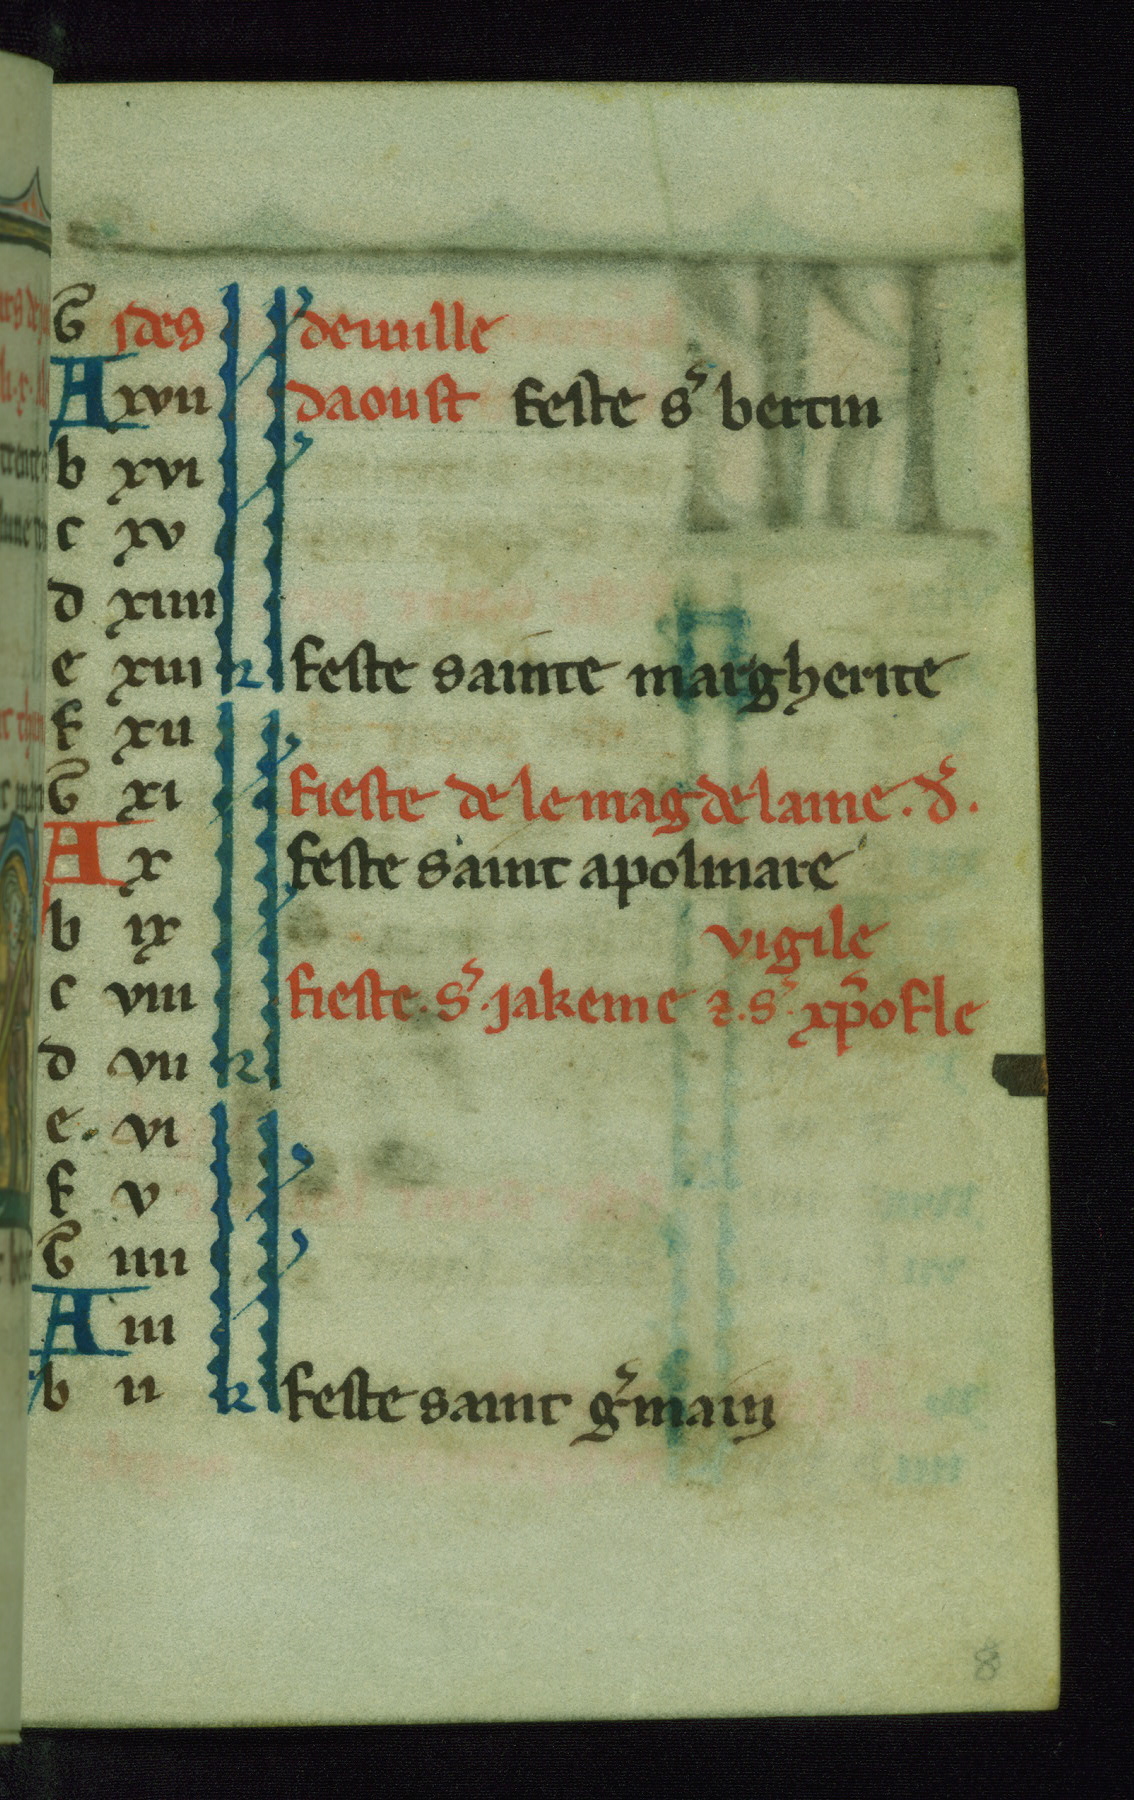 G ides deuuille
A xvii daoust feste s' bertin
b xvi
c xv
d xiiii
e xiii feste sainte margherite
f xii
G xi fieste de le magdelaine . d'.
A x feste saint apolinare
b ix vigile
c viii fieste . s' . jakeme ⁊ . s' . xp̄ofle
d vii
e . vi
f v
G iiii
A iii
b ii feste saint g'main
8